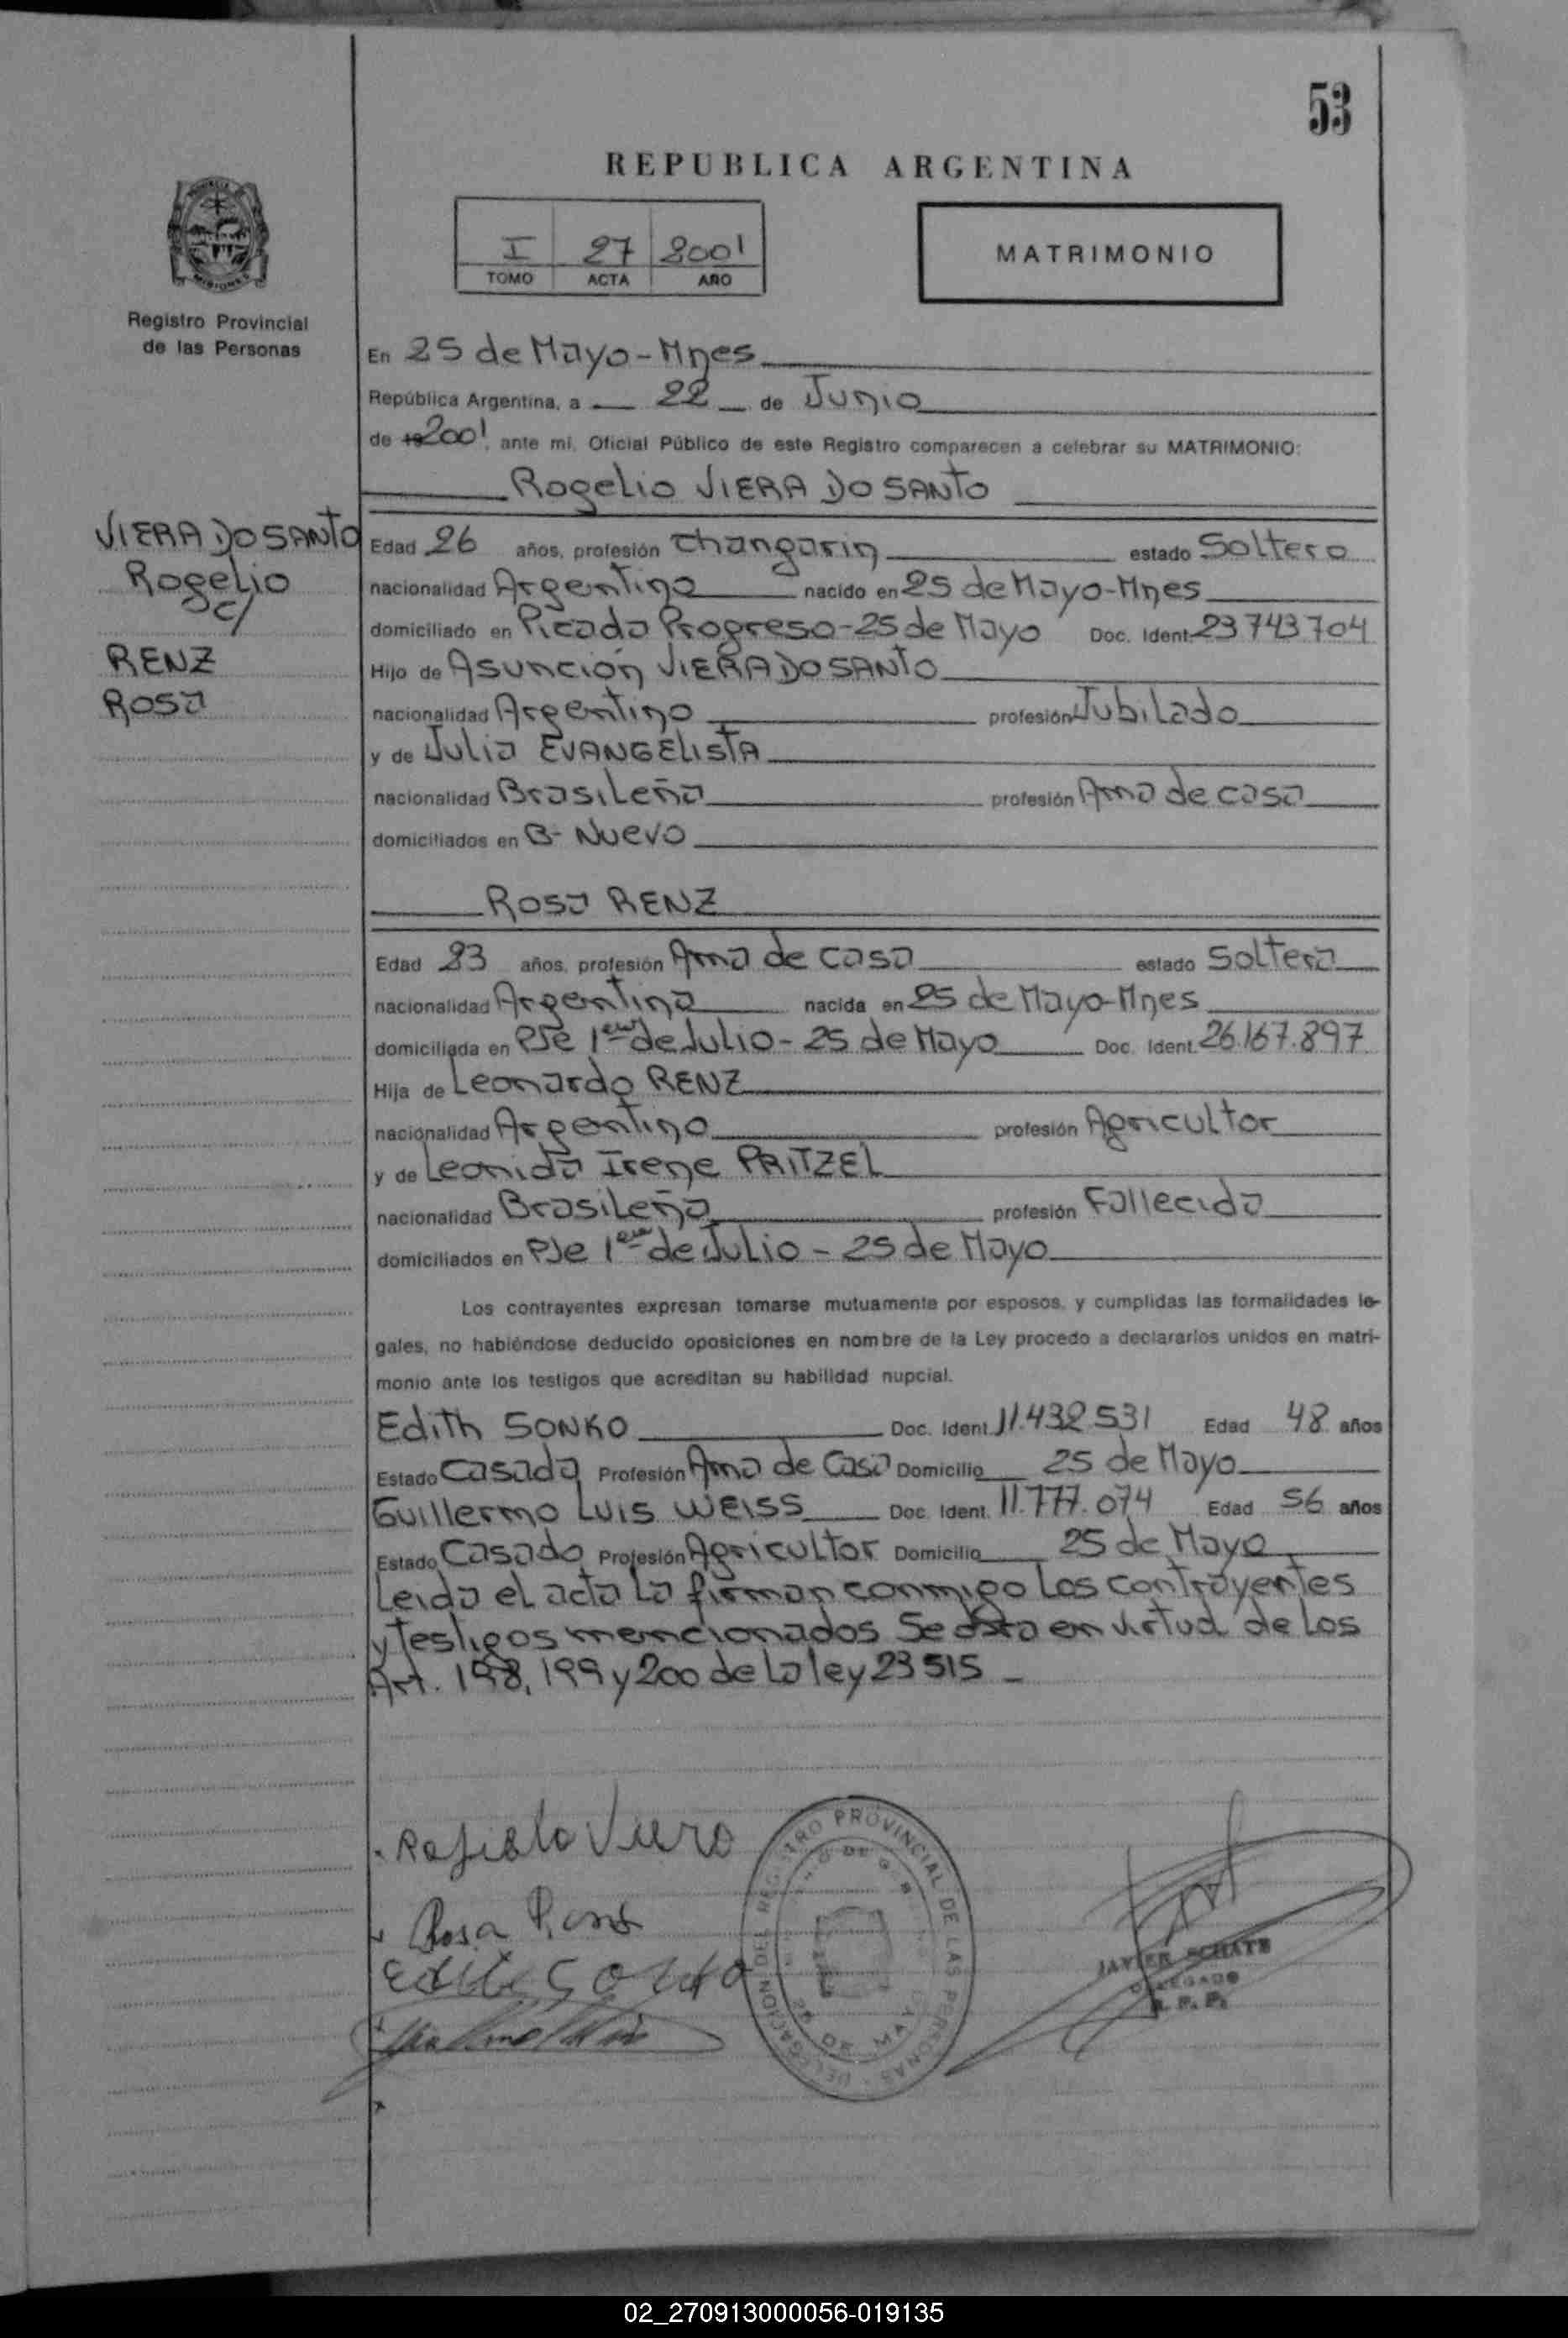 53
REPUBLICA ARGENTINA
I 27 2001
TOMO ACTA AÑO
MATRIMONIO
Registro Provincial
de las Personas
En 25 de Mayo - Mnes
República Argentina, a 22 de Junio
de 19 2001, ante mí, Oficial Público de este Registro comparecen a celebrar su MATRIMONIO:
Rogelio VIERA DO SANTO
VIERA DO SANTO
Rogelio
c/
RENZ
Rosa
Edad 26 años, profesión Changarin estado Soltero
nacionalidad Argentino nacido en 25 de Mayo-Mnes
domiciliado en Picada Progreso-25 de Mayo Doc. Ident. 23743704
Hijo de Asunción VIERA DO SANTO
nacionalidad Argentino profesión Jubilado
y de Julia EVANGELISTA
nacionalidad Brasileña profesión Ama de casa
domiciliados en B- Nuevo
Rosa RENZ
Edad 23 años, profesión Ama de casa estado Soltera
nacionalidad Argentina nacida en 25 de Mayo-Mnes
domiciliada en Pje 1ero de Julio - 25 de Mayo Doc. Ident. 26.167.897
Hija de Leonardo RENZ
nacionalidad Argentino profesión Agricultor
y de Leonida Irene PRITZEL
nacionalidad Brasileña profesión Fallecida
domiciliados en Pje 1ero de Julio - 25 de Mayo
Los contrayentes expresan tomarse mutuamente por esposos, y cumplidas las formalidades le-
gales, no habiéndose deducido oposiciones en nombre de la Ley procedo a declararlos unidos en matri-
monio ante los testigos que acreditan su habilidad nupcial.
Edith SONKO Doc. Ident. 11.432.531 Edad 48 años
Estado Casada Profesión Ama de Casa Domicilio 25 de Mayo
Guillermo Luis WEISS Doc. Ident. 11.777.074 Edad 56 años
Estado Casado Profesión Agricultor Domicilio 25 de Mayo
Leida el acta La firman conmigo Los contrayentes
y testigos mencionados Se en virtud de Los
Art. 198, 199 y 200 de La ley 23 515 -
Viera
Rosa Renz
Edith Sonko
DELEGACION DEL REGISTRO PROVINCIAL DE LAS PERSONAS
25 DE MAYO
JAVIER SCHATZ
DELEGADO
R. P. P.
02_270913000056-019135